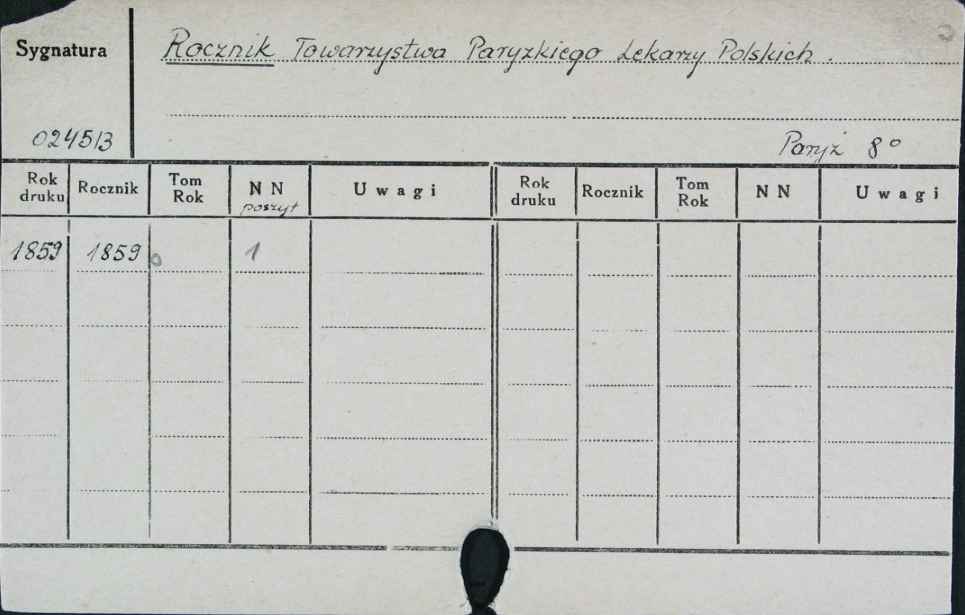 Sygnatura
Rocznik Towarzystwa Paryzkiego Lekarzy Polskich.
024513
Paryż 8°
Rok druku Rocznik Tom Rok N N poszyt Uwagi Rok druku Rocznik Tom Rok N N Uwagi
1859 1859 1